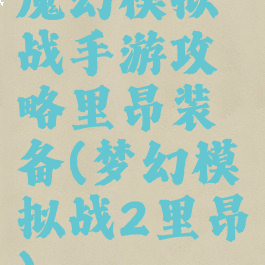 魔幻模拟
战手游攻
略里昂装
备(梦幻模
拟战2里昂
)